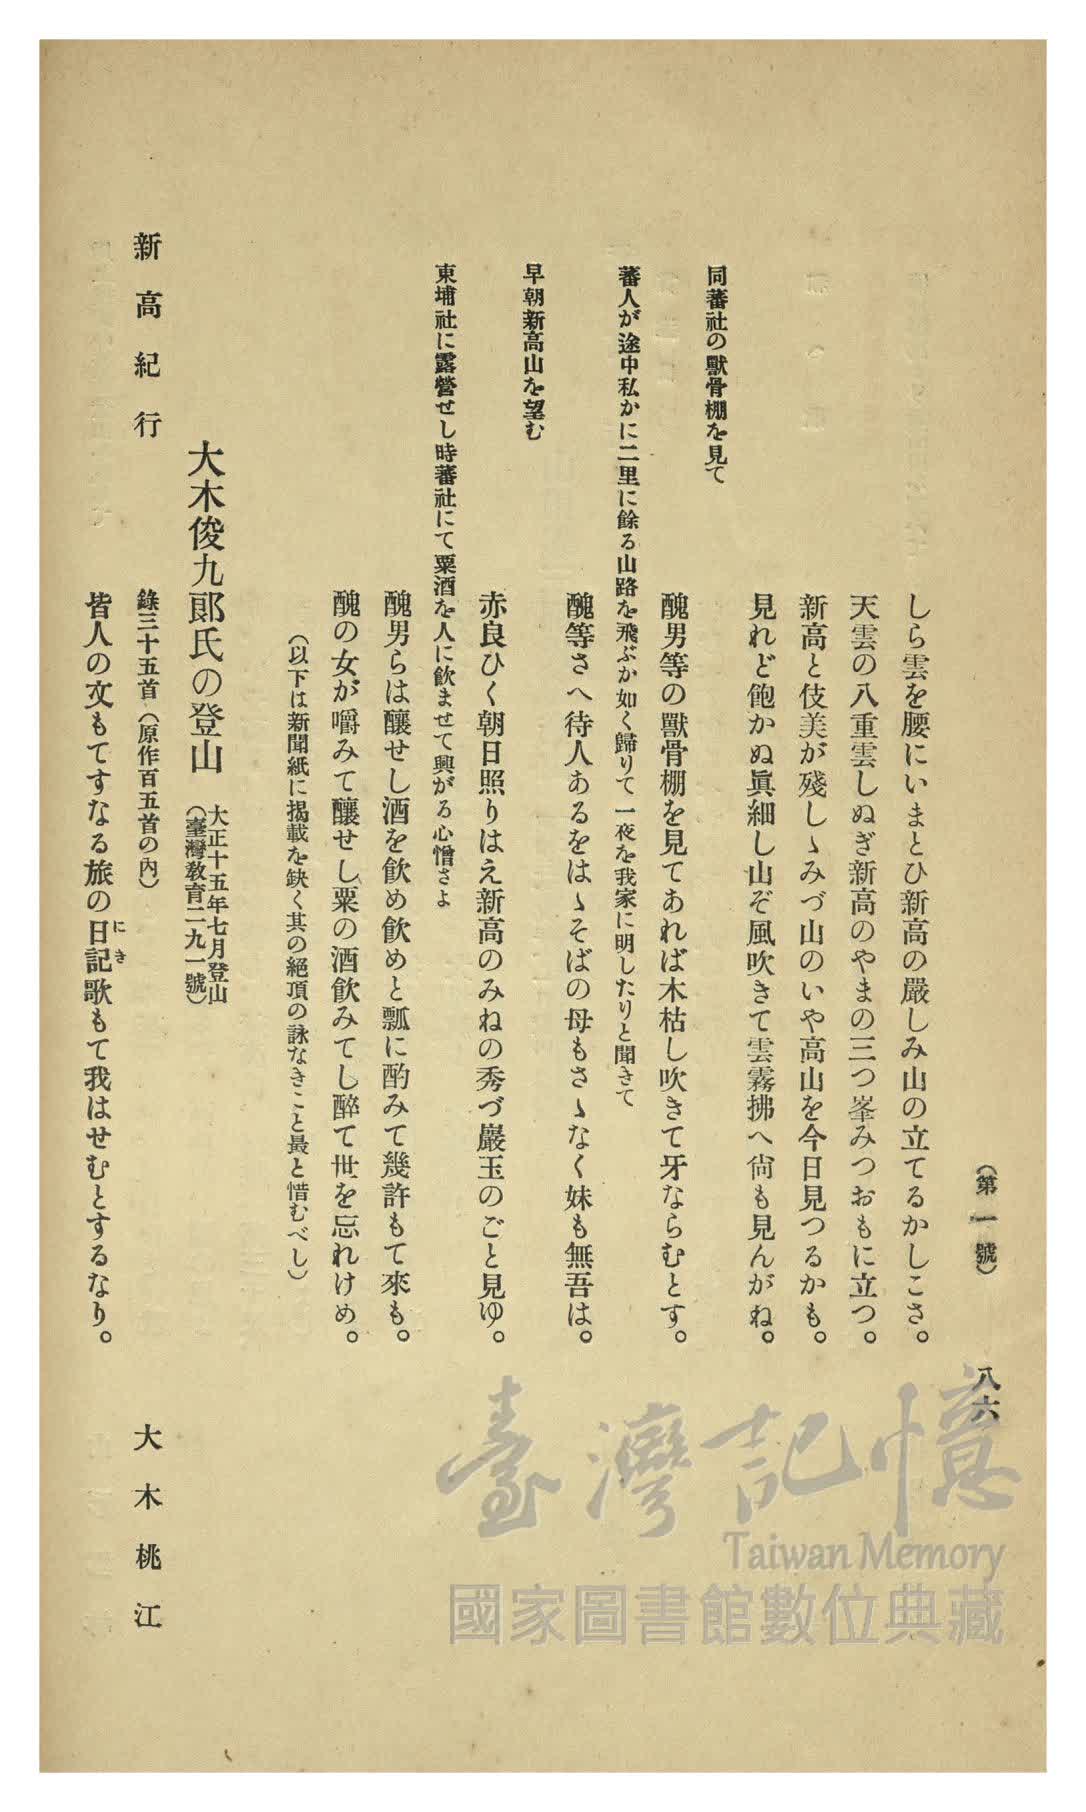 （第一號）　八六
しら雲を腰にいまとひ新高の嚴しみ山の立てるかしこさ。
天雲の八重雲しぬぎ新高のやまの三つ峯みつおもに立つ。
新高と伎美が殘しゝみづ山のいや高山を今日見つるかも。
見れど飽かぬ眞細し山ぞ風吹きて雲霧拂へ尙も見んがね。
同蕃社の獸骨棚を見て
醜男等の獸骨棚を見てあれば木枯し吹きて牙ならむとす。
蕃人が途中私かに二里に餘る山路を飛ぶか如く歸りて一夜を我家に明したりと聞きて
醜等さへ待人あるをはゝそばの母もさゝなく妹も無吾は。
早朝新高山を望む
赤良ひく朝日照りはえ新高のみねの秀づ巖玉のごと見ゆ。
東埔社に露營せし時蕃社にて粟酒を人に飮ませて興がる心憎さよ
醜男らは釀せし酒を飮め飮めと瓢に酌みて幾許もて來も。
醜の女が嚼みて釀せし粟の酒飮みてし醉て世を忘れけめ。
（以下は新聞紙に揭載を缺く其の絕頂の詠なきこと最と惜むべし）
大木俊九郞氏の登山
大正十五年七月登山
（臺灣敎育二九一號）
新高紀行　錄三十五首（原作百五首の內）　大木桃江
皆人の文もてすなる旅の日記歌もて我はせむとするなり。
にき
臺灣記憶
Taiwan Memory
國家圖書館數位典藏